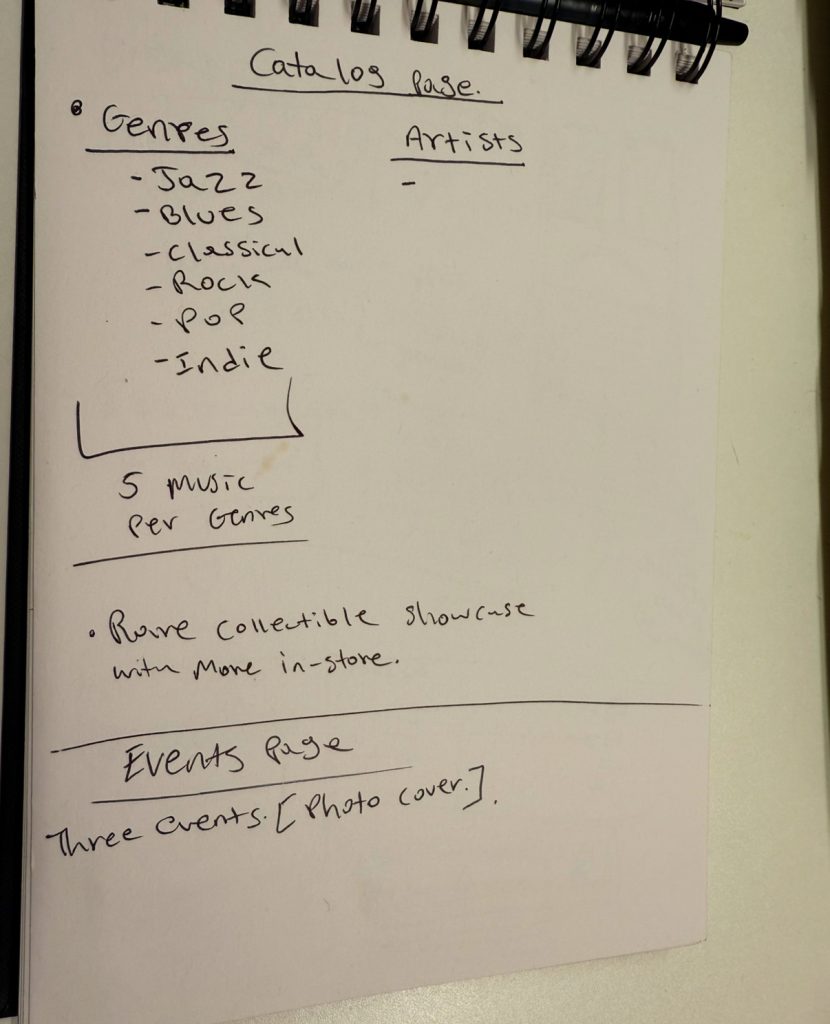 Catalog Page.
• Genres
- Jazz
- Blues
- Classical
- Rock
- Pop
- Indie
5 music
Per Genres
Artists
-
• Rare collectible showcase
with more in-store.
Events Page
Three events. [Photo cover.].